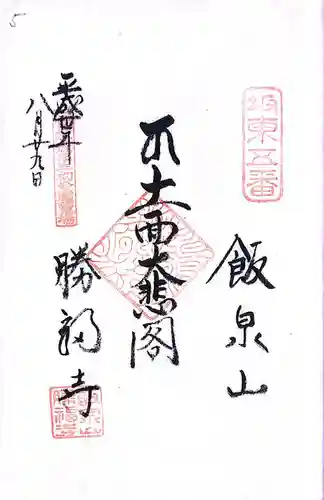 5
坂東五番
飯泉山
十一面大悲閣
勝福寺
平成廿年
八月廿九日